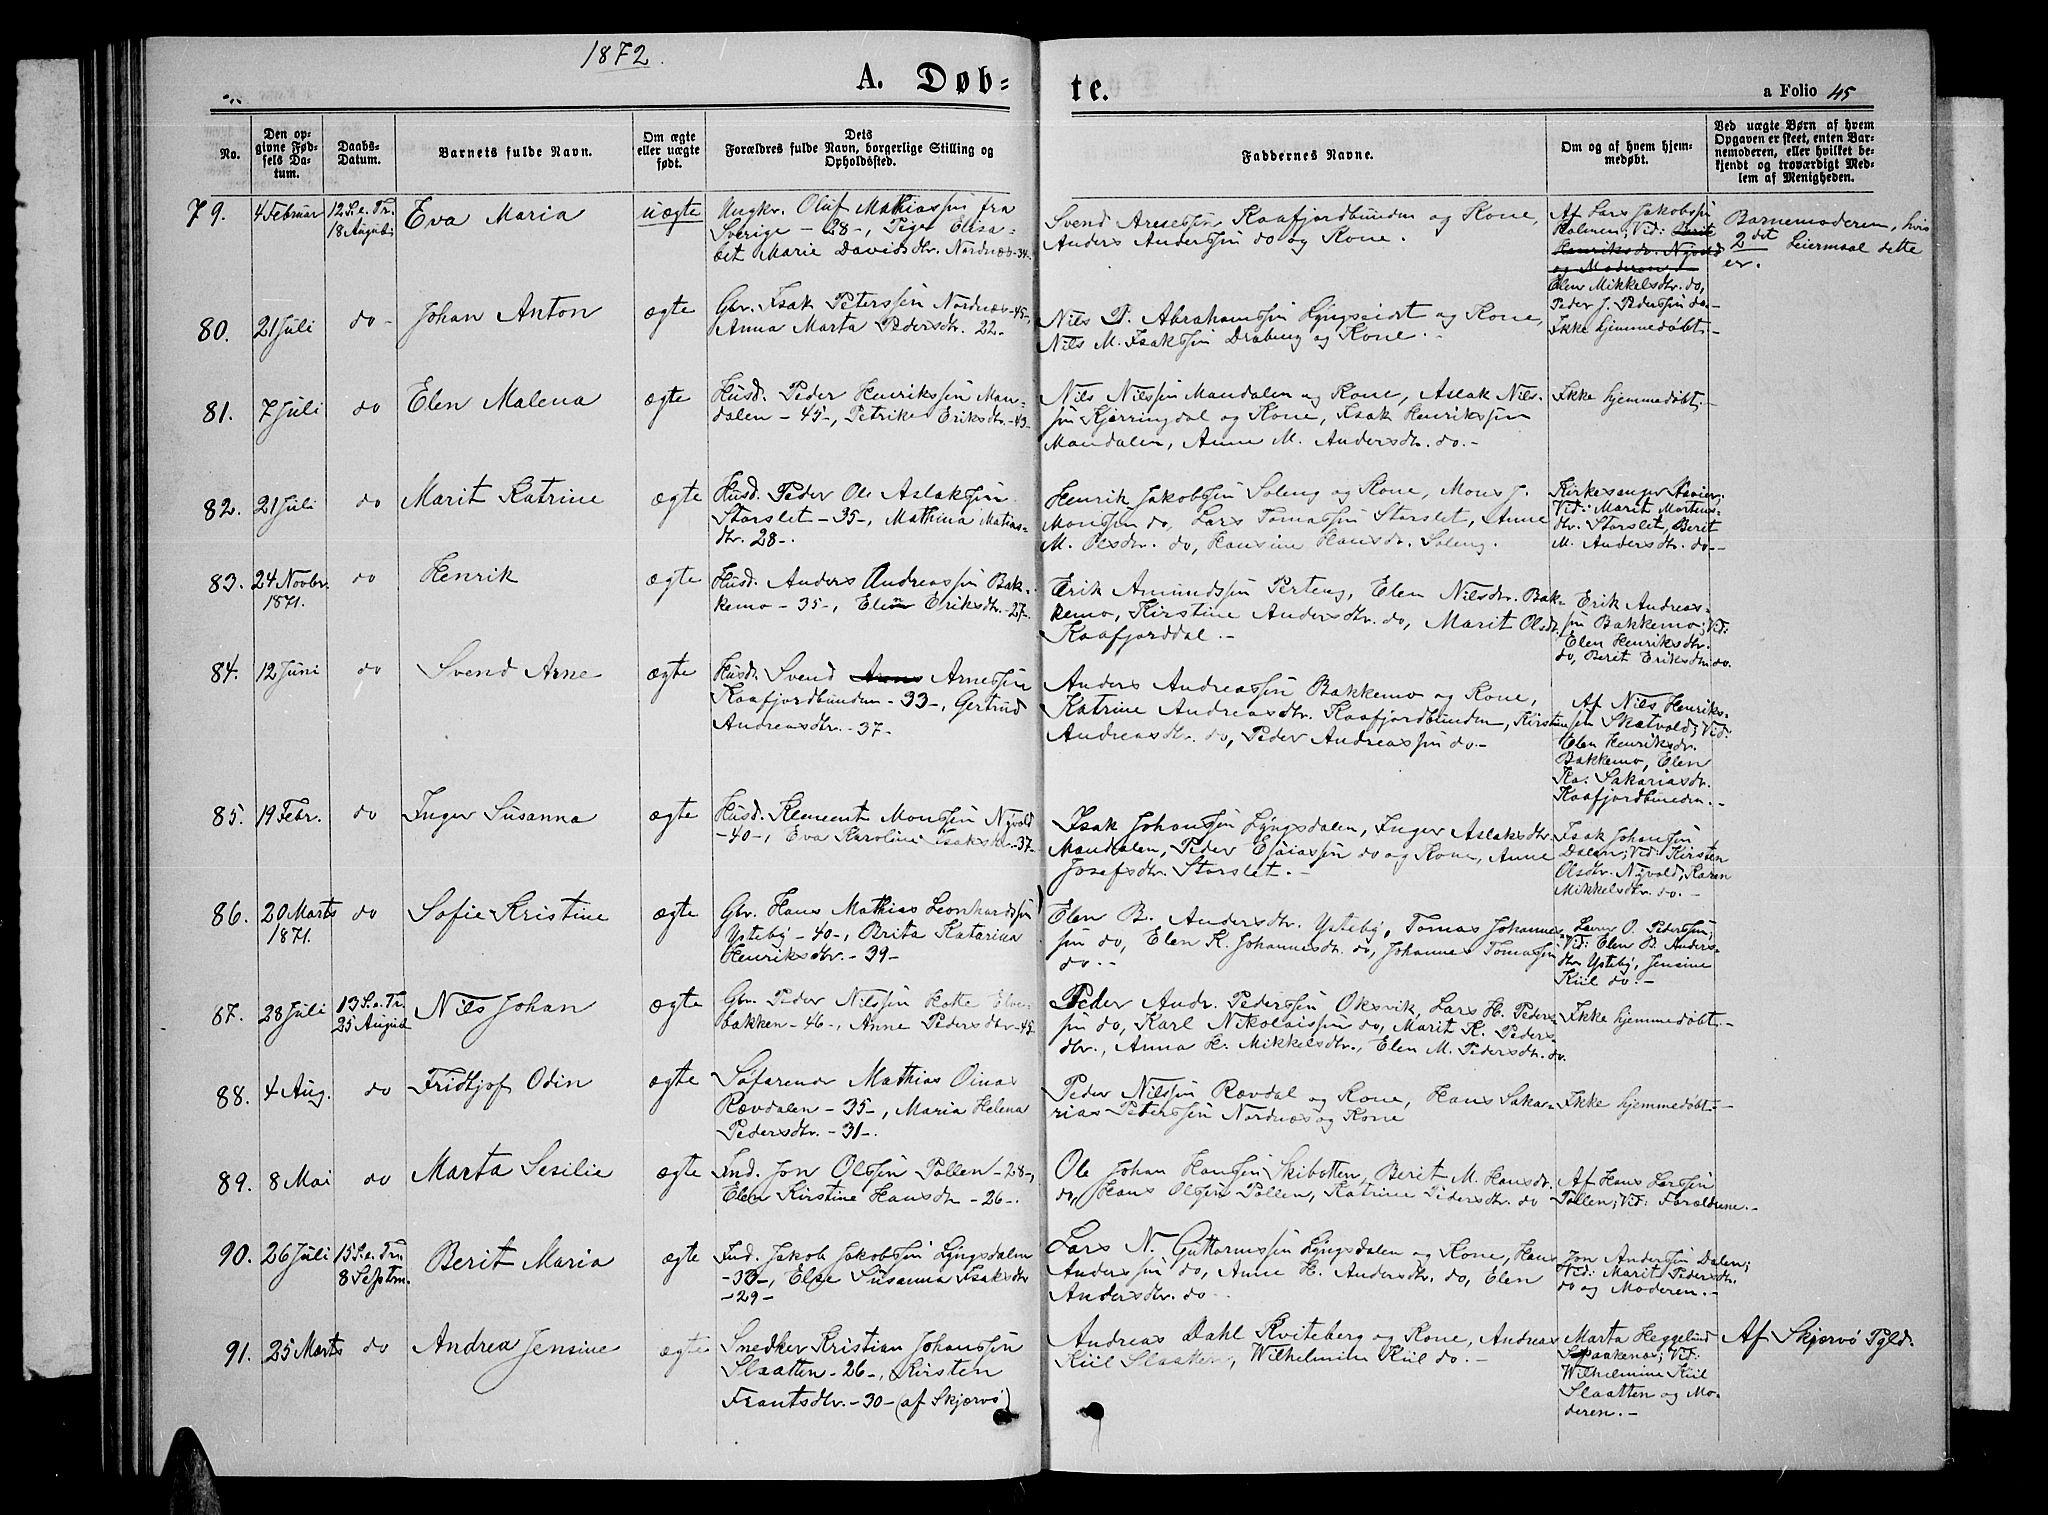 1872.
A. Døb=
te.
a Folio 45
No.
Den op=
givne Fød=
sels Da=
tum.
Daabs=
Datum.
Barnets fulde Navn.
Om ægte
eller uægte
født.
Dets
Forældres fulde Navn, borgerlige Stilling og
Opholdssted.
Faddernes Navne.
Om og af hvem hjem=
medøbt.
Ved uægte Børn af hvem
Opgaven er skeet, enten Bar=
nemoderen, eller hvilket be=
kjendt og troværdigt Med=
lem af Menigheden.
79. 4 Februar
12 S. e. Tr.
18 August
Eva Maria
uægte
Ungkr. Oluf Mathiassøn fra
Sverige - 28 -, Pige Elisa-
bet Marie Davidsdtr. Nordnæs - 34 -
Svend Arnessøn Kaafjordbunden og Kone,
Anders Anderssøn do og Kone.
Af Lars Jakobssøn
Holmen; Vid: Berit
Henriksdr. Nyvold
og Moderen d
Elen Mikkelsdtr. do,
Peder J. Pederssøn do -
Barnemoderen, hvis
2det Leiermaal dette
er.
80. 21 Juli
do -
Johan Anton
ægte
Gbr. Isak Peterssøn Nordnæs - 45 -,
Anna Marta Pedersdtr. 22 -
Nils P. Abrahamssøn Lyngseidet og Kone,
Nils M. Isakssøn Draberg og Kone. -
Ikke hjemmedøbt. -
81. 7 Juli
do
Elen Malena
ægte
Husd. Peder Henrikssøn Man-
dalen - 45 -, Petrike Eriksdtr. - 43 -
Nils Nilssøn Mandalen og Kone, Aslak Nils-
søn Kjerringdal og Kone, Isak Henrikssøn
Mandalen, Anne M. Andersdtr. do. -
Ikke hjemmedøbt. -
82. 21 Juli
do
Marit Katrine
ægte
Husd. Peder Ole Aslakssøn
Storslet - 35 -, Mathina Matias-
dtr. 28 -.
Henrik Jakobssøn Soleng og Kone, Mons J.
Monssøn do, Lars Tomassøn Storslet, Anne
M. Olsdtr. do, Hansine Hansdr. Soleng.
Kirkesanger
Vid: Marit Mortens-
dtr. Storslet, Berit
M. Andersdtr. do. -
83. 24 Novbr.
1871.
do
Henrik
ægte
Husd. Anders Andreassøn Bak-
kemo - 35 -, Elen Eriksdtr. - 27 -
Erik Amundssøn Perteng, Elen Nilsdtr. Bak-
kemo, Kirstine Andersdtr. do, Marit Olsdtr.
Kaafjorddal. -
Erik Andreas-
søn Bakkemo; Vid:
Elen Henriksdtr.
do, Berit Eriksdtr. do.
84. 12 Juni
do
Svend Arne
ægte
Husd. Svend Arnessøn
Kaafjordbunden - 33 -, Gertrud
Andreasdtr. - 37 -
Anders Andreassøn Bakkemo og Kone,
Katrine Andreasdtr. Kaafjordbunden, Kirsten
Andreasdtr. do, Peder Andreassøn do. -
Af Nils Henriks-
søn Skatvold; Vid:
Elen Henriksdr.
Bakkemo, Elen
Ka: Sakariasdr.
Kaafjordbunden. -
85. 19 Febr.
do
Inger Susanna
ægte
Husd. Klement Monssøn Nyvold
- 40 -, Eva Karoline Isaksdtr. - 37 -
Isak Johanssøn Lyngsdalen, Inger Aslaksdtr.
Mandalen, Peder Esaiassøn do og Kone, Anne
Josefsdtr. Storslet. -
Isak Johanssøn
Dalen; Vid: Kirsten
Olsdtr. Nyvold, Karen
Mikkelsdtr. do. -
86. 20 Marts
1871.
do
Sofie Kristine
ægte
Gbr. Hans Mathias Leonhardssøn
Ysteby - 40 -, Brita Katarina
Henriksdtr. - 39 -
Elen B. Andersdtr. Ysteby, Tomas Johannes-
søn do, Elen K. Johannesdtr. do, Johannes Tomassøn
do. -
O. Pederssøn;
Vid: Elen B. Anders-
dtr Ysteby, Jensine
Kiil do. -
87. 28 Juli
13 S. e. Tr.
25 August
Nils Johan
ægte
Gbr. Peder Nilssøn Hotte Elve-
bakken - 46 -, Anne Pedersdtr - 45 -
Peder Andr. Pederssøn Oksvik, Lars H. Peders-
søn do, Karl Nikolaissøn do, Marit K. Peders-
dtr., Anna H. Mikkelsdtr., Elen M. Pedersdtr. do.
Ikke hjemmedøbt. -
88. 4 Aug.
do
Fridtjof Odin
ægte
Søfarende Mathias Oinas
Rævdalen - 35 -, Maria Helena
Pedersdtr. - 31 -.
Peder Nilssøn Rævdal og Kone, Hans Saka-
rias Peterssøn Nordnæs og Kone
Ikke hjemmedøbt. -
89. 8 Mai
do
Marta Sesilie
ægte
Ind. Jon Olssøn Pollen - 28 -,
Elen Kirstine Hansdtr - 26 -.
Ole Johan Hanssøn Skibotten, Berit M. Hansdtr.
do, Hans Olssøn Pollen, Katrine Pedersdtr. do
Af Hans Larssøn
Pollen; Vid: Forældrene. -
90. 26 Juli
15 S. e. Tr.
8 Septem.
Berit Maria
ægte
Ind. Jakob Jakobssøn Lyngsdalen
- 33 -, Else Susanna Isaksdtr
- 29 -
Lars N. Guttormssøn Lyngsdalen og Kone, Hans
Anderssøn do, Anne H. Andersdtr. do, Elen
Andersdtr. do -
Jon Anderssøn Dalen;
Vid: Marit Pedersdtr.
do og Moderen. -
91. 25 Marts
do
Andrea Jensine
ægte
Snedker Kristian Johanssøn
Slaatten - 26 -, Kirsten
Frantsdtr. - 30 - (af Skjærvø)
Andreas Dahl Kviteberg og Kone, Andreas
Kiil Slaatten, Wilhelmine Kiil do. -
Marta Heggelund
Spaakenæs; Vid:
Wilhelmine Kiil
Slaatten og Mo-
deren. -
Af Skjærvø Pgld.